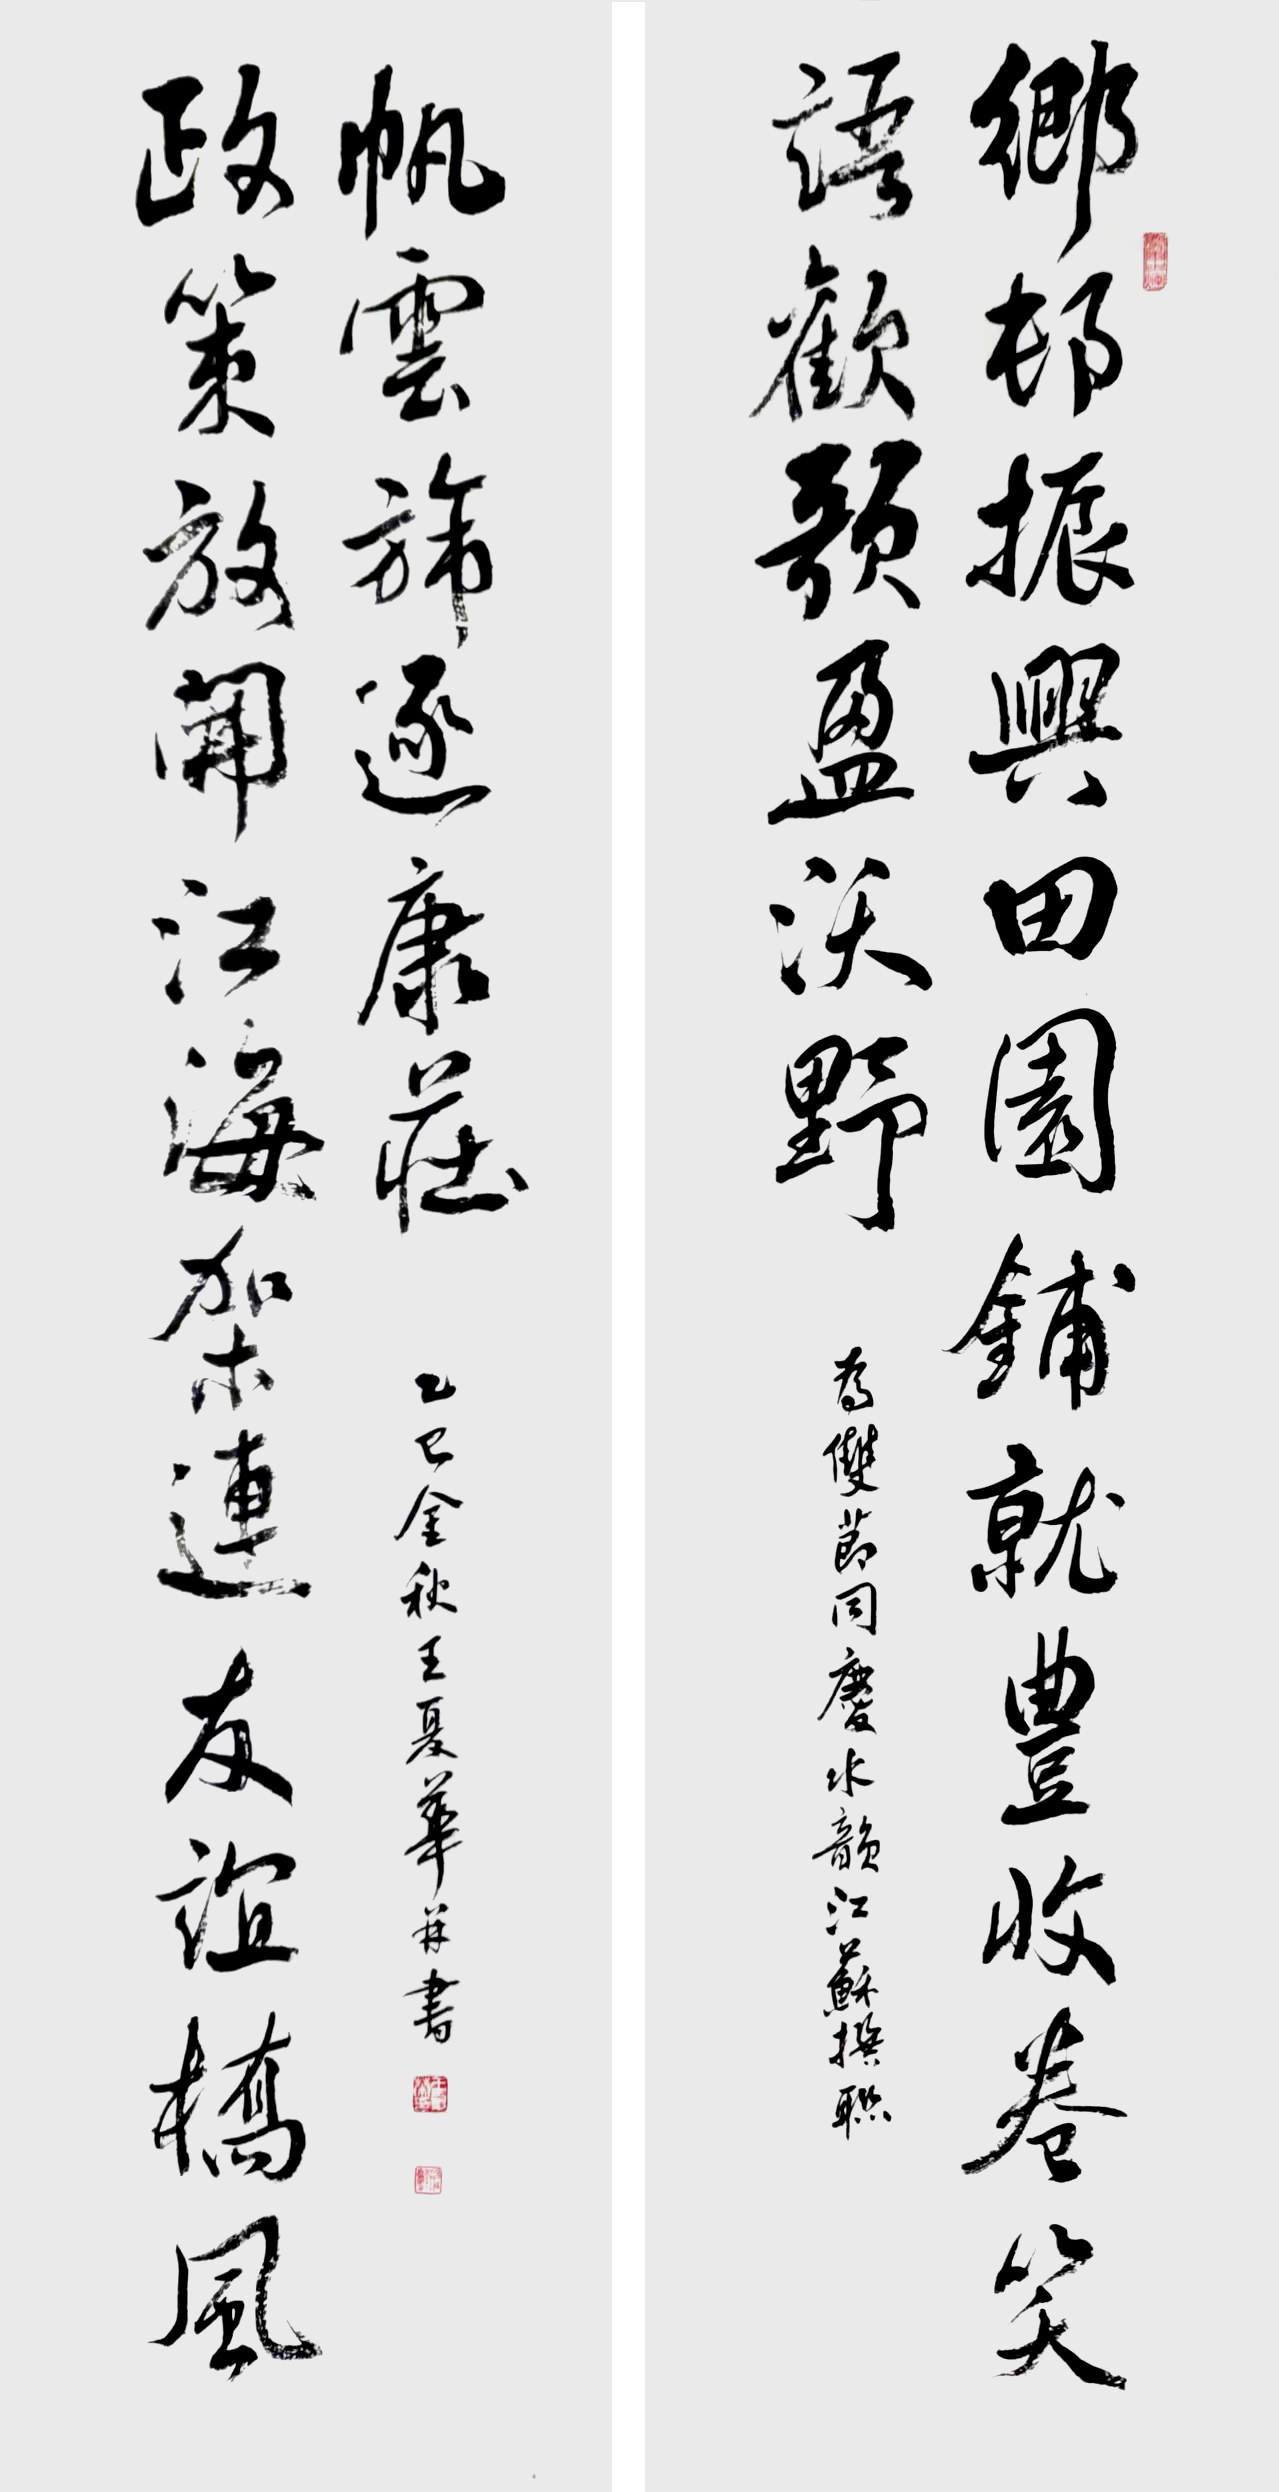 鄉邨振興田園鋪就豐收卷笑
語歡歌盈沃野
為雙節同慶水韻江蘇撰聯
政策放開江海架連友誼橋風
帆雲旆逐康莊
乙巳金秋王夏華并書